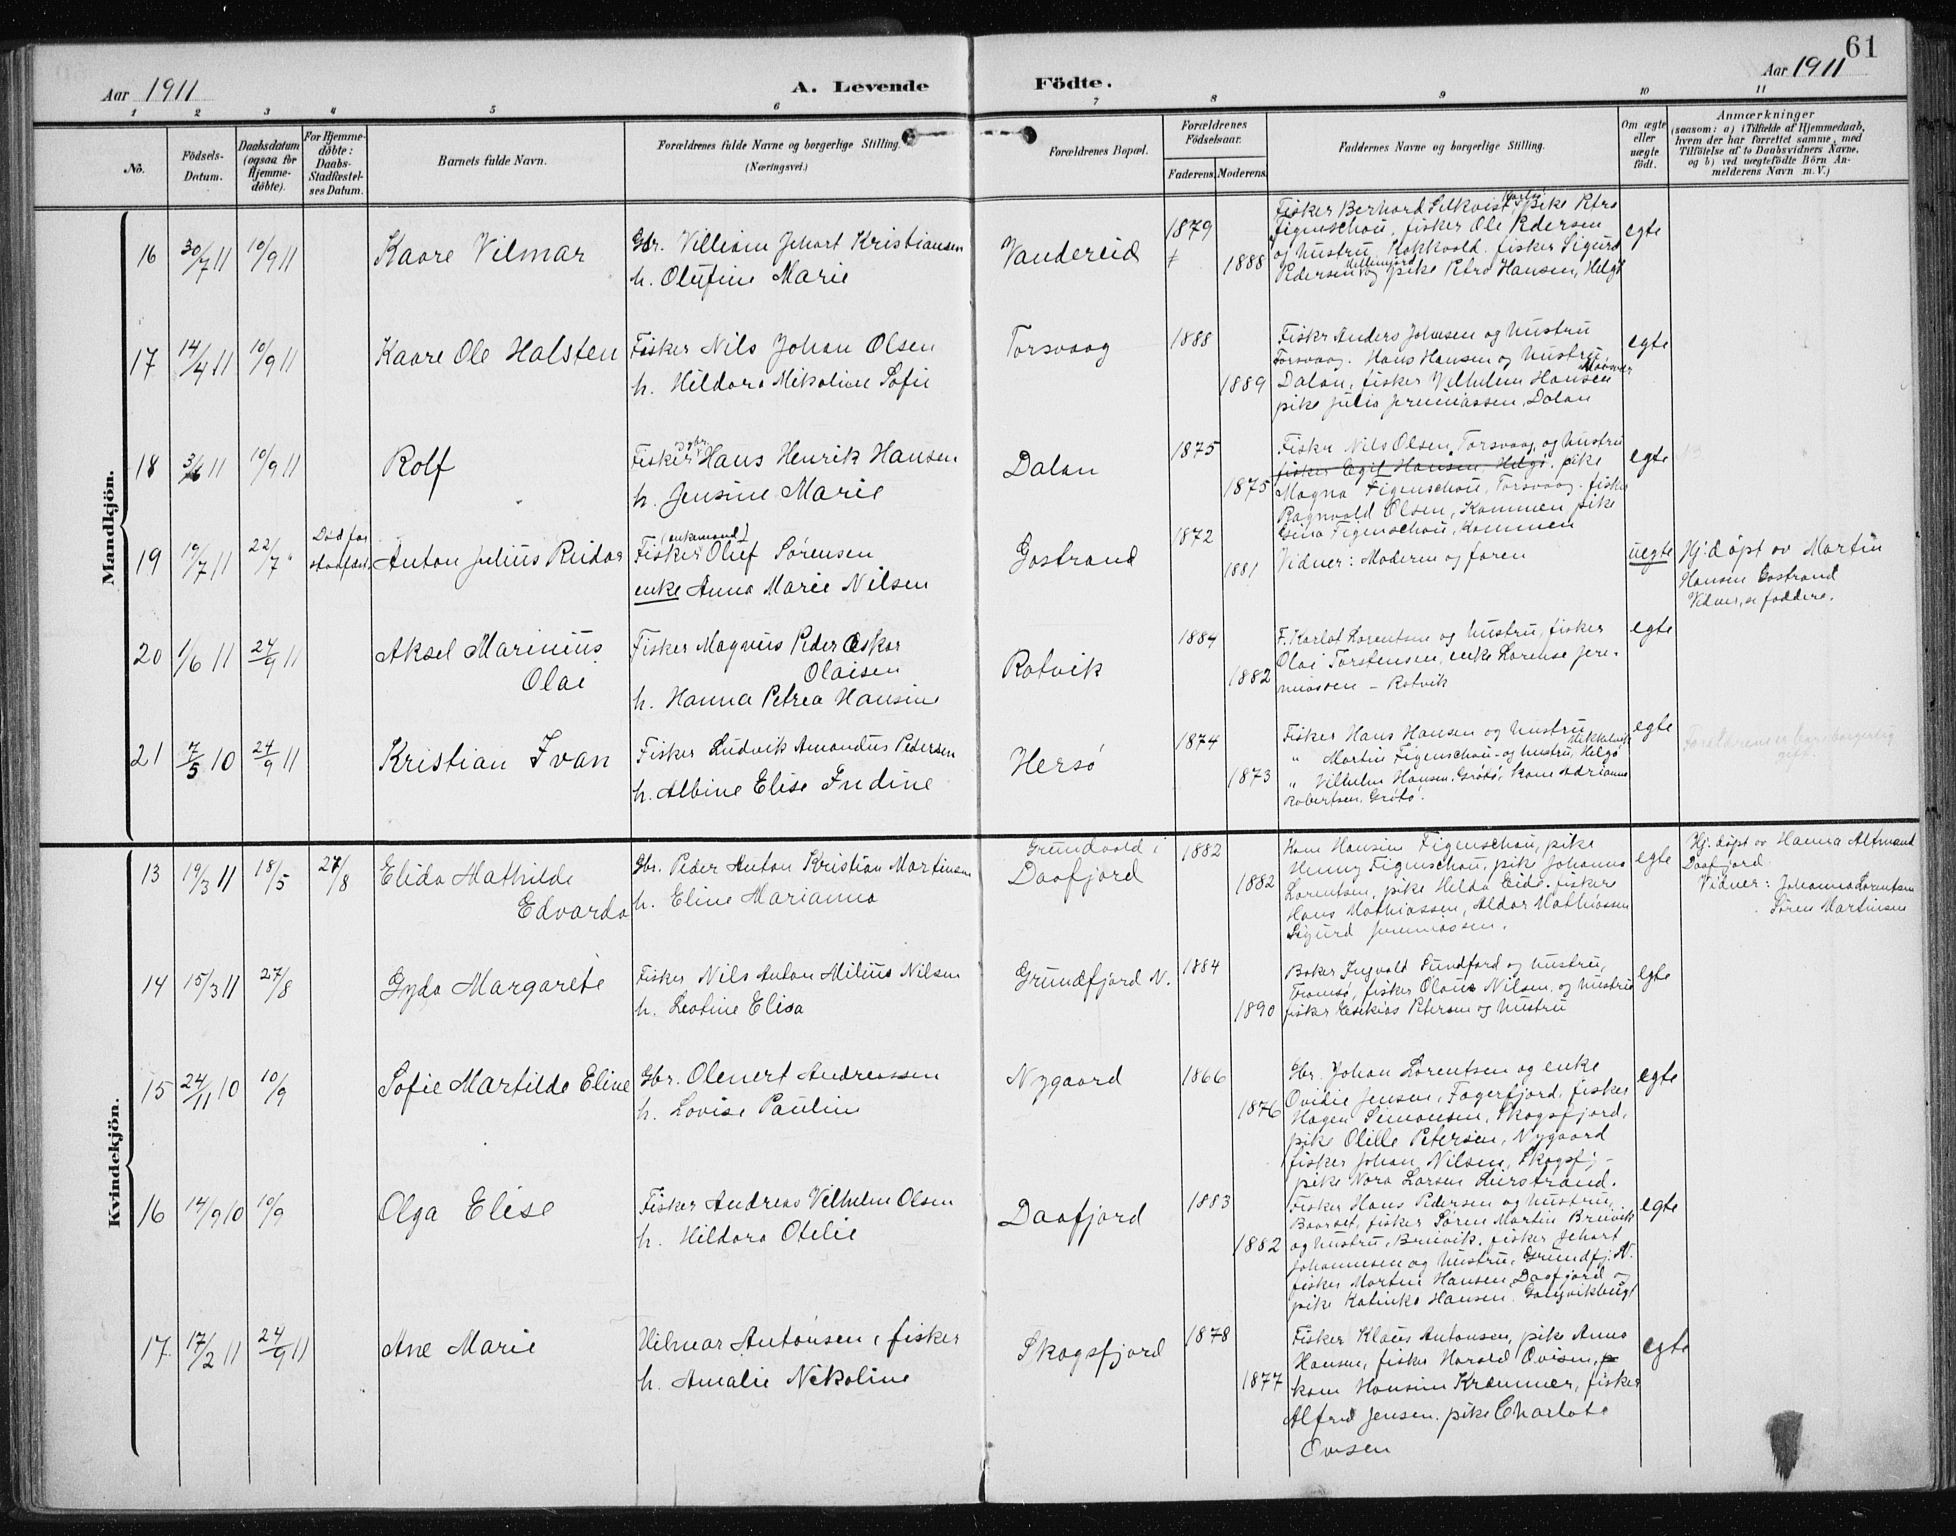 61
Aar 1911
A. Levende
Födte.
Aar 1911
1 2 3 4 5 6 7 8 9 10 11
No.
Födsels-
Datum.
Daabsdatum
(ogsaa for
Hjemme-
døbte).
For Hjemme-
døbte:
Daabs-
Stadfæstel-
ses Datum.
Barnets fulde Navn.
Forældrenes fulde Navne og borgerlige Stilling.
(Næringsvei.)
Forældrenes Bopæl.
Forældrenes
Födselsaar.
Faderens. Moderens.
Faddernes Navne og borgerlige Stilling.
Om ægte
eller
uægte
födt.
Anmærkninger
(saasom: a) i Tilfælde af Hjemmedaab,
hvem der har forrettet samme, med
Tilföielse af to Daabsvidners Navne,
og b) ved uegtefödte Börn An-
melderens Navn m. V.)
Mandkjön.
16 30/7 11 10/9 11 Kaare Vilmar
Gbr. Villiam Jehart Kristiansen
h. Olufine Marie
Vandereid
1879
1888
Fisker Berhard Selkvist pike Petra
Figenschou, fisker Ole Pedersen
og hustru Kokkvold. fisker Sigurd
Pedersen og pike Petra Hansen, Helgø
egte
17 14/4 11 10/9 11 Kaare Ole Halsten
Fisker Nils Johan Olsen
h. Hildora Mikoline Sofie
Torsvaag
1888
1889
Fisker Anders Johnsen og hustru
Torsvaag. Hans Hansen og hustru,
Dalan, fisker Vilhelm Hansen
pike Julia Jeremiassen, Dalan
egte
18 3/6 11 10/9 11 Rolf
Fisker gbr. Hans Henrik Hansen
h. Jensine Marie
Dalan
1875
1875
Fisker Nils Olsen, Torsvaag, og hustru
fisker Egil Hansen, Helgø. pike
Magna Figenschou, Torsvaag. fisker
Ragnvald Olsen, Kammen pike
Gina Figenschou, Kammen
egte
19 10/7 11 22/7 Død før
stadfæst. Anton Julius Reidar
(enkemand)
Fisker Oluf Sørensen
enke Anna Marie Nilsen
Gostrand
1872
1881
Vidner: Moderen og faren
uegte
Hj. døpt av Martin
Hansen Gostrand
Vidner, se faddere.
20 1/6 11 24/9 11 Aksel Marinius
Olai
Fisker Magnus Peder Oskar
Olaisen
h. Hanna Petrea Hansine
Rotvik
1884
1882
F. Karlot Lorentsen og hustru, fisker
Olai Torstensen, enke Lorense Jere-
miassen - Rotvik
egte
21 7/5 10 24/9 11 Kristian Ivan
Fisker Ludvik Amandus Pedersen
h. Albine Elise Indine
Hersø
1874
1873
Fisker Hans Hansen og hustru
" Martin Figenschou og hustru, Helgø
" Vilhelm Hansen, Grøtø, kone Adrianna
Robertsen, Grøtø.
egte
Forældrene er bare borgerlig
gift
Kvindekjön.
13 19/3 11 18/5 27/8 Elida Mathilde
Edvarda
Gbr. Peder Anton Kristian Martinsen
h. Eline Marianna
Grundvold i
Daafjord
1882
1882
Kone Hansine Figenschou, pike
Henny Figenschou, pike Johanna
Lorentsen, pike Helda Eide. fisker
Hans Mathiassen, Aldor Mathiassen
Sigurd Jeremiassen.
egte
Hj. døpt av Hanna Altmand
Daafjord.
Vidner: Johanna Lorentsen
Søren Martinsen
14 15/3 11 27/8 Gyda Margarete
Fisker Nils Anton Milius Nilsen
h. Leotine Elisa
Grundfjord N.
1884
1890
Baker Ingvald Sundfard og hustru,
Tromsø, fisker Olaus Nilsen og hustru
fisker Esekias Petersen og hustru
egte
15 24/11 10 10/9 Sofie Martilde Eline
Gbr. Olenert Andreassen
h. Lovise Pauline
Nygaard
1866
1876
Gbr. Johan Lorentsen og enke
Ovidie Jensen, Fagerfjord, fisker
Hagen Simonsen, Skogsfjord,
pike Olille Petersen, Nygaard
fisker Johan Nilsen, Skogsfj -
pike Nora Larsen Lurstrand.
egte
16 14/9 10 10/9 Olga Elise
Fisker Andreas Vilhelm Olsen
h. Hildora Otelie
Daafjord
1883
1882
Fisker Hans Pedersen og hustru,
Baarset, fisker Søren Martin Breivik
og hustru, Breivik. fisker Jehart
Johannesen og hustru, Grundfj. N.
fisker Martin Hansen, Daafjord og
pike Katinka Hansen.
egte
17 17/2 11 24/9 11 Ane Marie
Hilmar Antonsen, fisker
h. Amalie Nikoline
Skogsfjord
1878
1877
Fisker Klaus Antonsen, pike Anna
Hansen, fisker Harald Ovesen, p
kone Hansine Kræmmer, fisker
Alfred Jensen. pike Charlote
Ovesen
egte